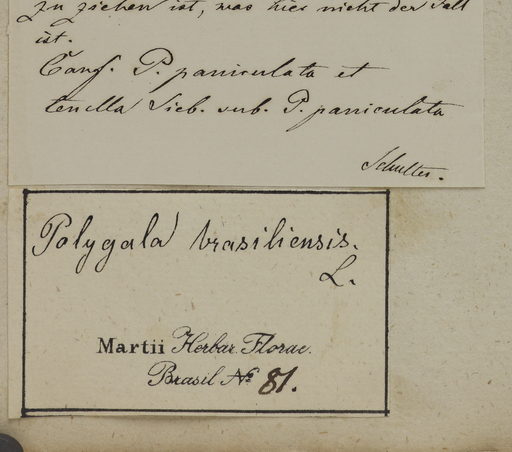 zu ziehen ist, was hier nicht der Fall
ist.
Conf. P. paniculata et
tenella Sieb. sub. P. paniculata
Schultes.
Polygala brasiliensis.
L.
Martii Herbar. Florae.
Brasil No 81.